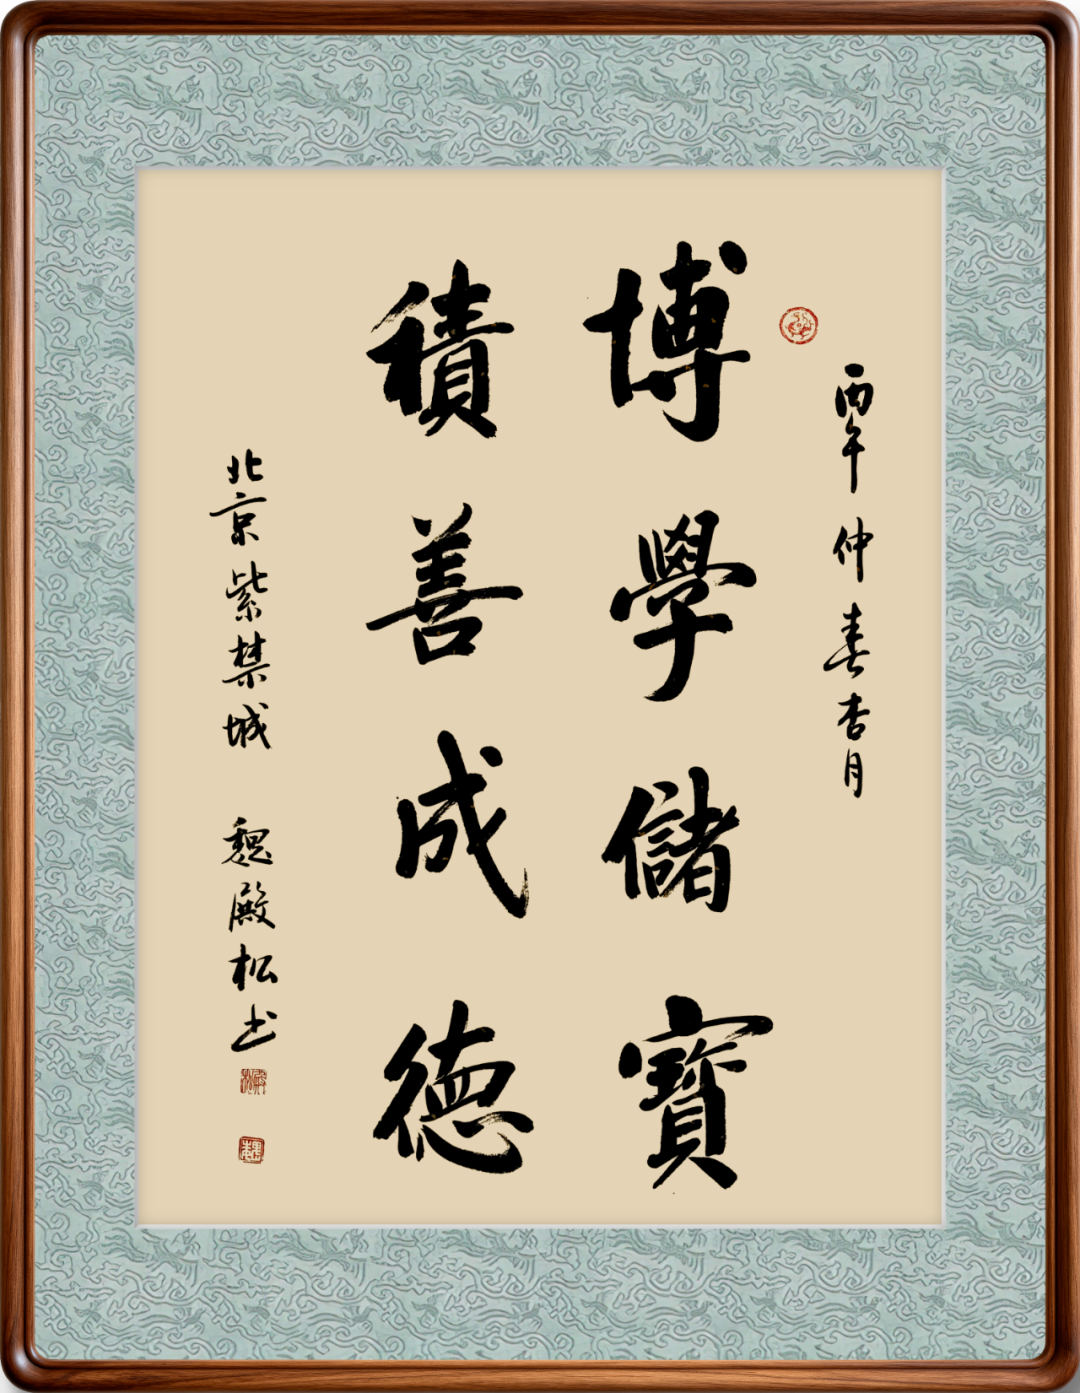 丙午仲春杏月
博學儲寶
積善成德
北京紫禁城 魏殿松书